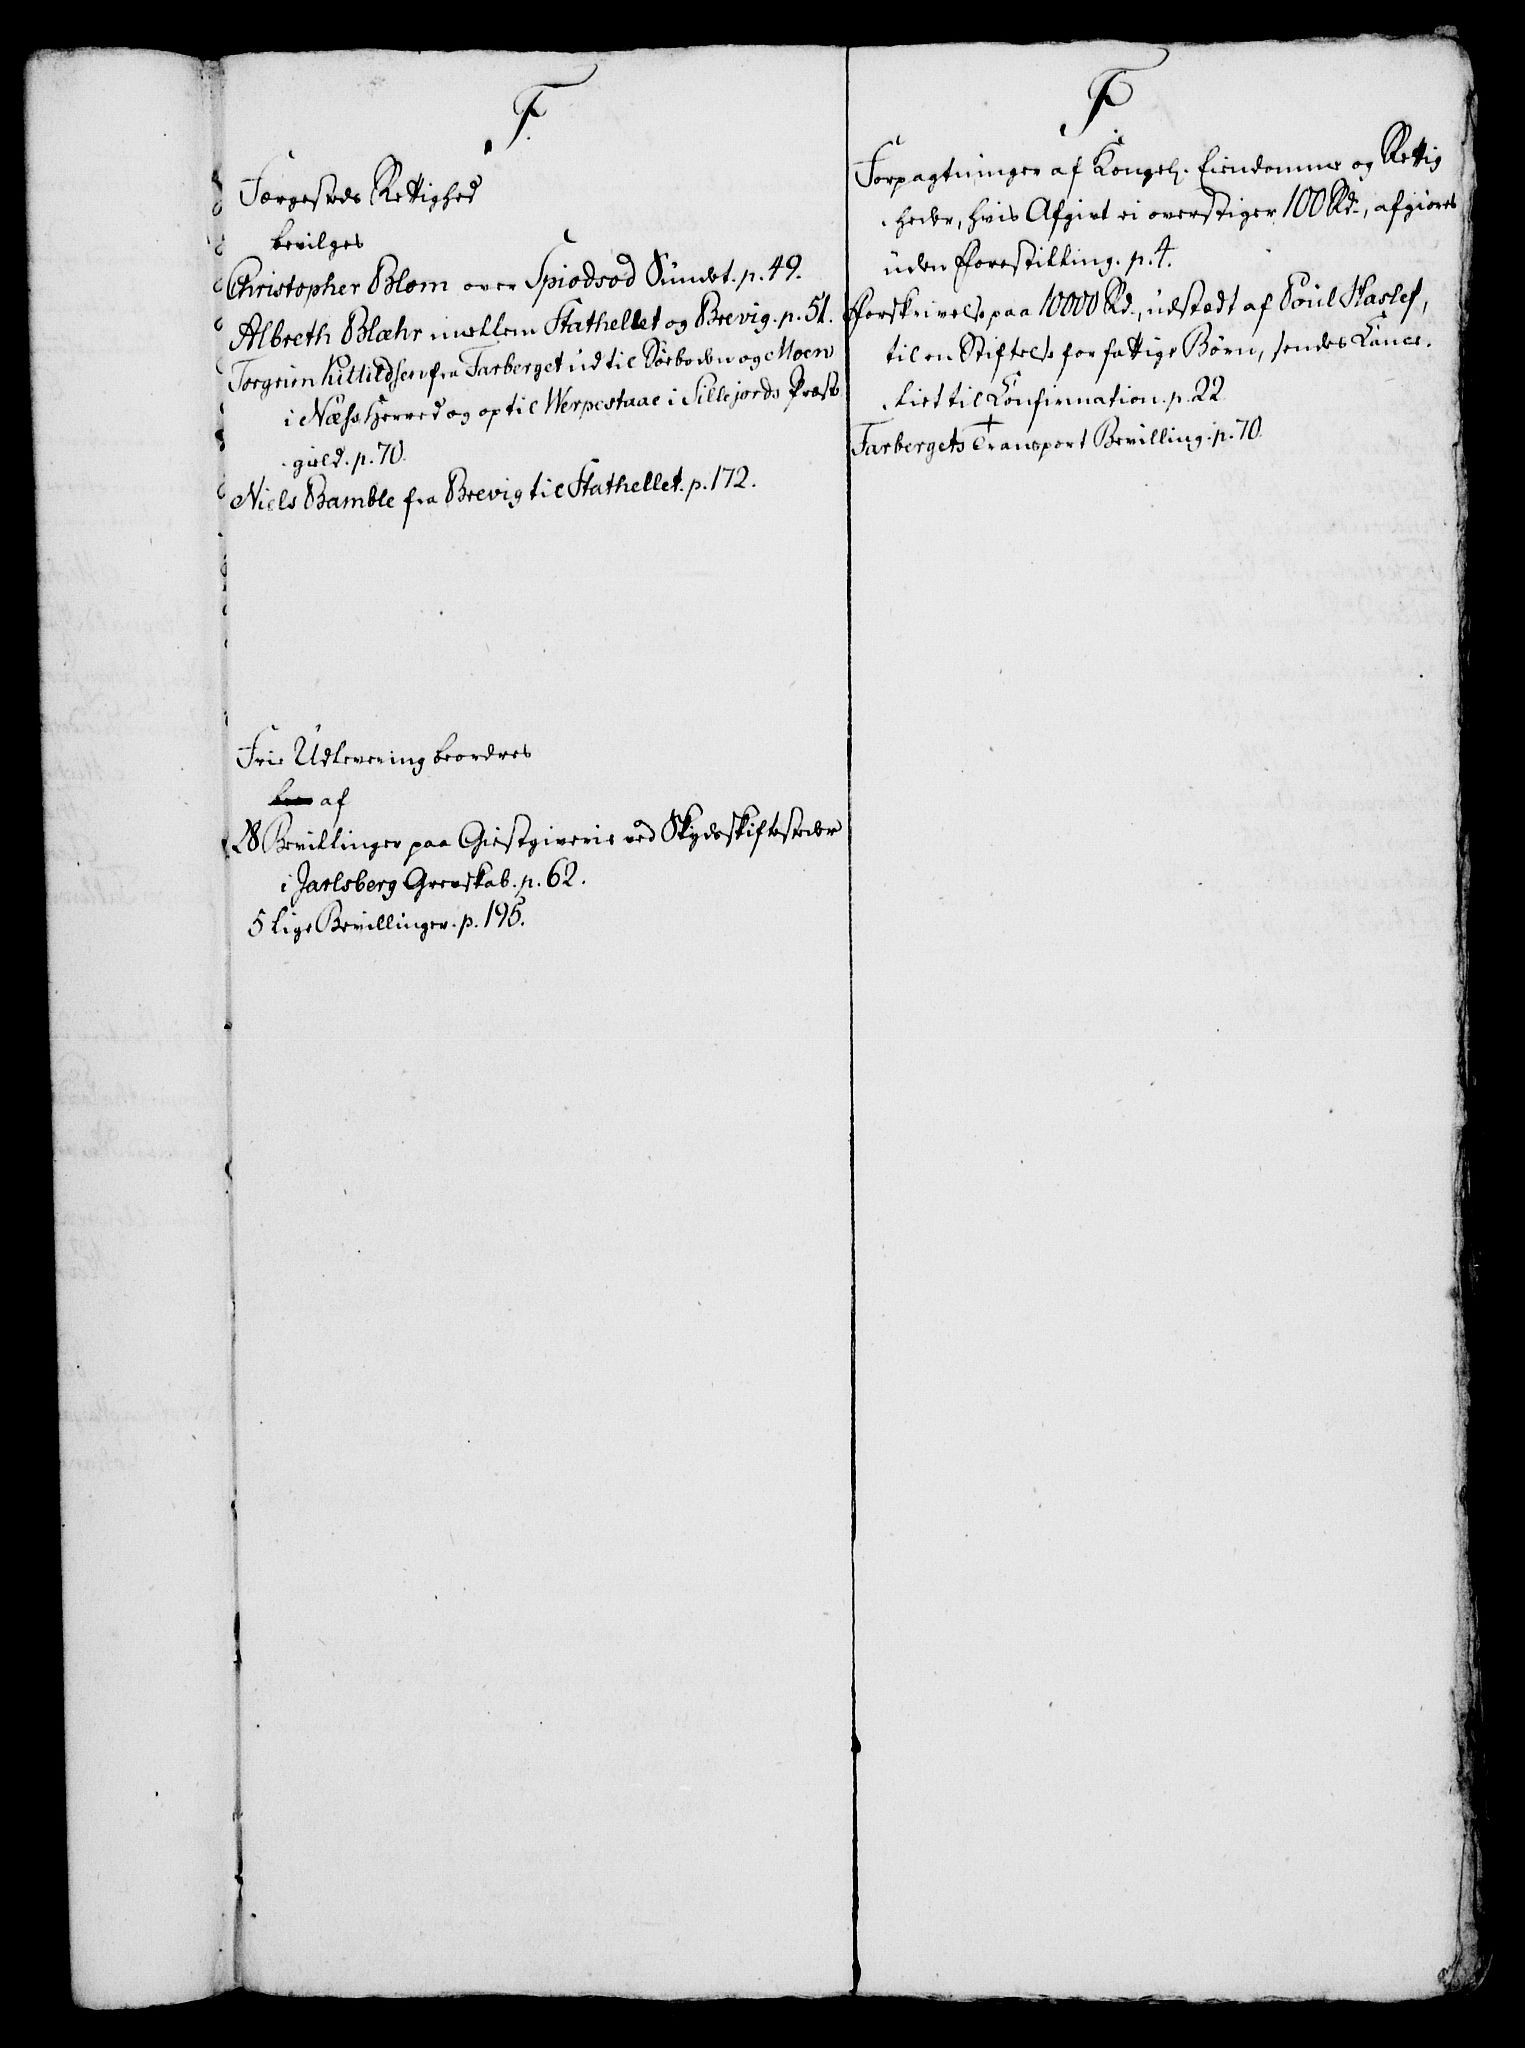 F.
Færgesteds Rettighed
bevilges
Christopher Blom over Spiodsod Sundet. p. 49.
Albreth Blæhr mellem Stathellet og Brevig. p. 51.
Torgrim Kittildsen fra Farberget ud til Sõeboden og Moen
i Næss Herred og op til Werpestaae i Sillejords Præste
gield. p. 70.
Niels Bamble fra Brevig til Stathellet. p. 172.
Frie Udlevering beordres
af
28 Bevillinger paa Giestgiverie ved Skydsskiftesteder
i Jarlsberg Grevskab. p. 62.
5 lige Bevillinger. p. 195.
F
Forpagtninger af Kongel. Eiendomme og Rettig
heder, hvis Afgivt ei overstiger 100 Rd., afgiøres
uden Forestilling. p. 4.
Forskrivelse paa 10000 Rd., udstædt af Poul Haslef,
til en Stiftelse for fattige Børn, sendes Cance-
liet til Confirmation. p. 22
Farbergets Transport Bevilling. p. 70.